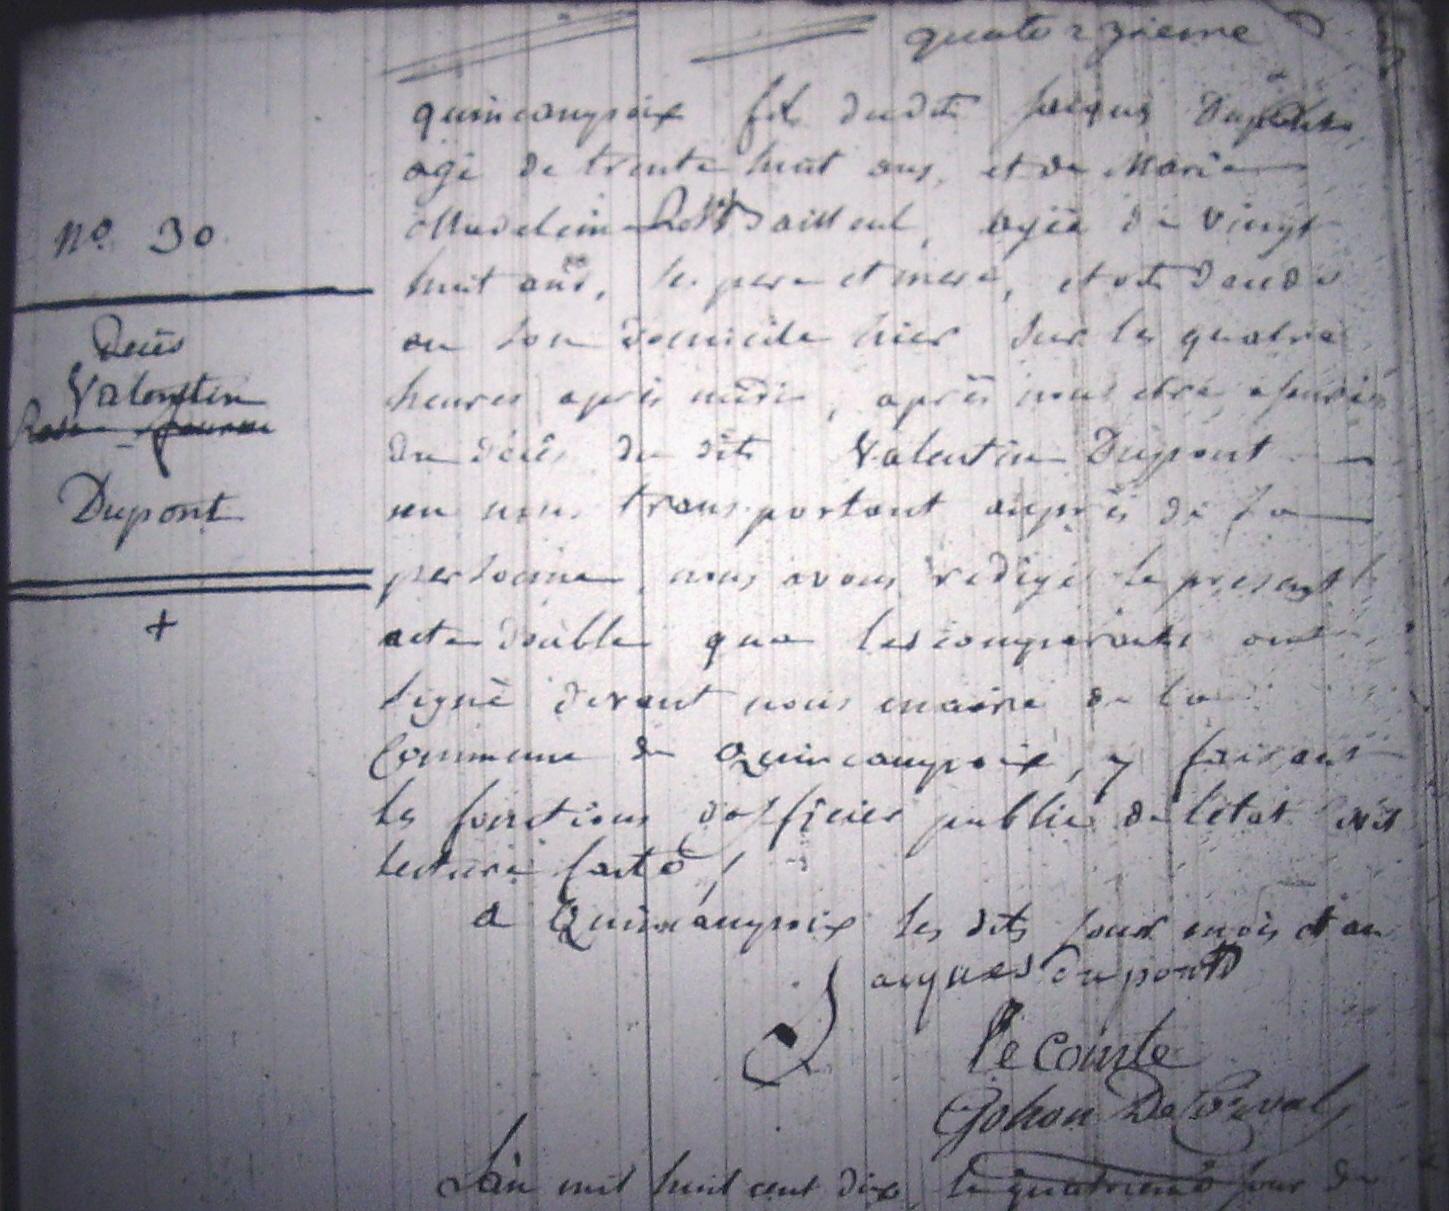 quatorzieme
quincampoix fils dudit Jacques Dupont
agé de trente huit ans, et de Marie
Madeleine Bailleul, agée de vingt
No. 30
huit ans, ses pere et mere, et est decedé
en son domicile hier sur les quatre
Decès
Valentin
heures après midi, après nous etre assurés
du décès du dit Valentin Dupont
Dupont
en nous transportant auprès de sa
personne, nous avons redigé le present
acte double que les comparants ont
signé devant nous maire de la
Commune de Quincampoix, y faisant
les fonctions d'officier public de l'état civil
lecture faite,
a Quincampoix les dits jour mois et an
Jacques dupont
le comte
Gohon De Corval
L'an mil huit cent dix, le quatrieme jour de